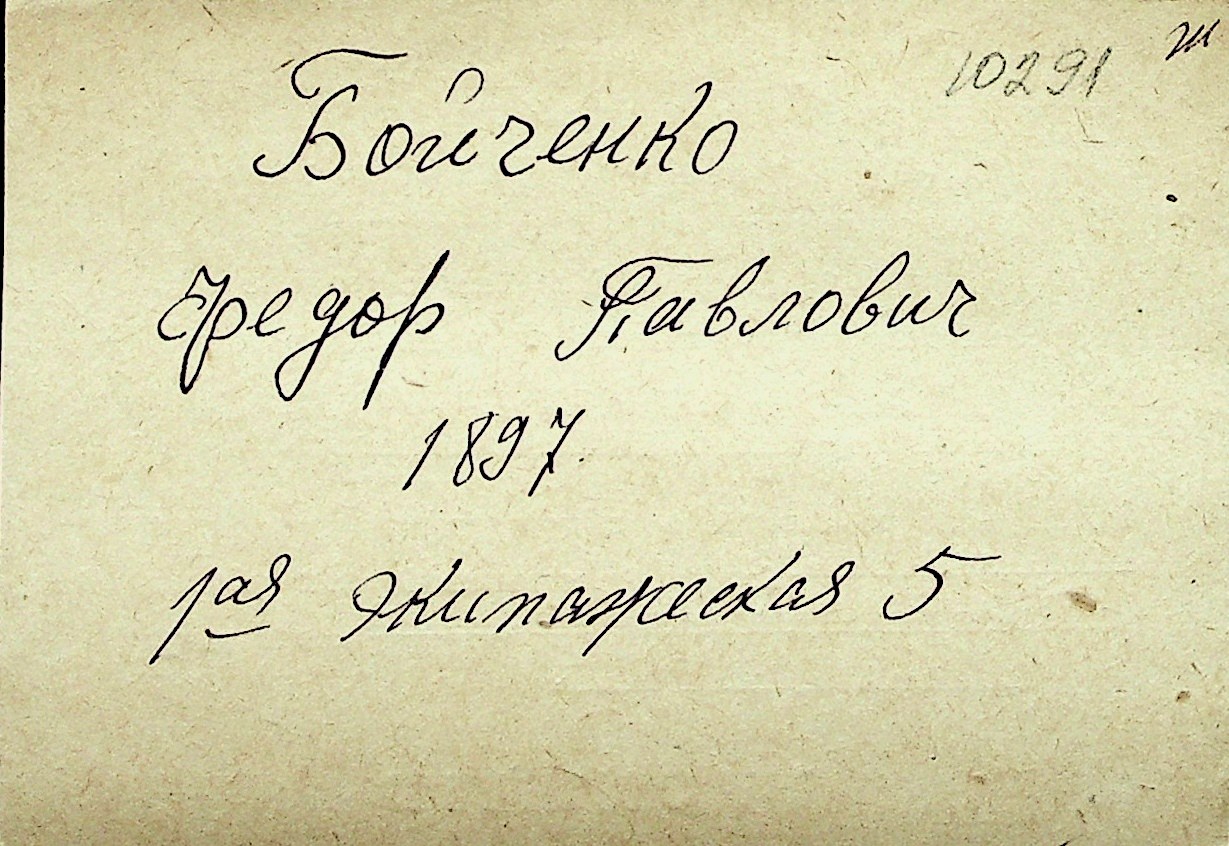 10291
Бойченко
Федор Павлович
1897.
1ая Экипажеская 5